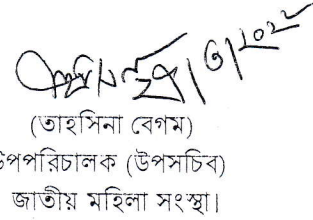 (তাহসিনা বেগম)
উপপরিচালক (উপসচিব)
জাতীয় মহিলা সংস্থা।